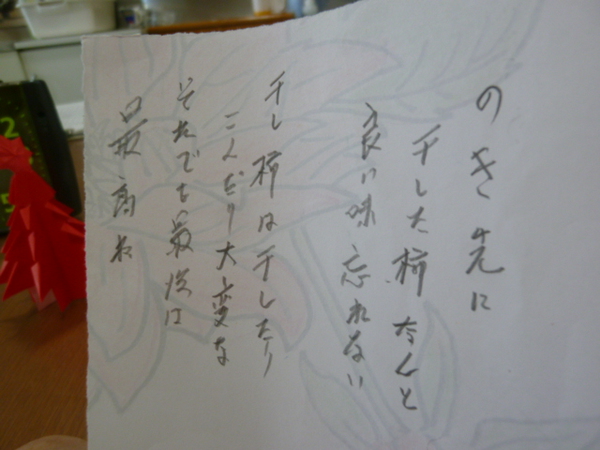 のき先に
干した柿なんと
良い味忘れない
干し柿は干したり
こんどり大変な
それでも最後は
最高ね